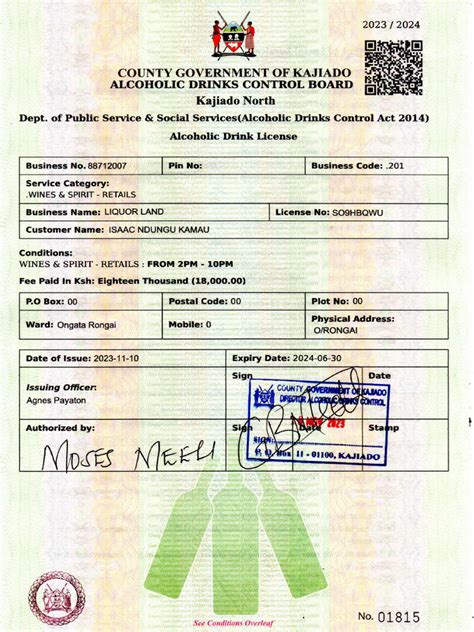 2023 / 2024
COUNTY GOVERNMENT OF KAJIADO
ALCOHOLIC DRINKS CONTROL BOARD
Kajiado North
Dept. of Public Service & Social Services(Alcoholic Drinks Control Act 2014)
Alcoholic Drink License
Business No. 88712007 Pin No: Business Code: .201
Service Category:
.WINES & SPIRIT - RETAILS
Business Name: LIQUOR LAND License No: SO9HBQWU
Customer Name: ISAAC NDUNGU KAMAU
Conditions:
WINES & SPIRIT - RETAILS : FROM 2PM - 10PM
Fee Paid In Ksh: Eighteen Thousand (18,000.00)
P.O Box: 00 Postal Code: 00 Plot No: 00
Ward: Ongata Rongai Mobile: 0 Physical Address:
O/RONGAI
Date of Issue: 2023-11-10 Expiry Date: 2024-06-30
Issuing Officer: Sign Date
Agnes Payaton
COUNTY GOVERNMENT OF KAJIADO
DIRECTOR ALCOHOLIC DRINKS CONTROL
Authorized by: Date Stamp
NOV 2023
MOSES MEELI
SIGN:
P. O Box 11 - 01100, KAJIADO
See Conditions Overleaf
No. 01815